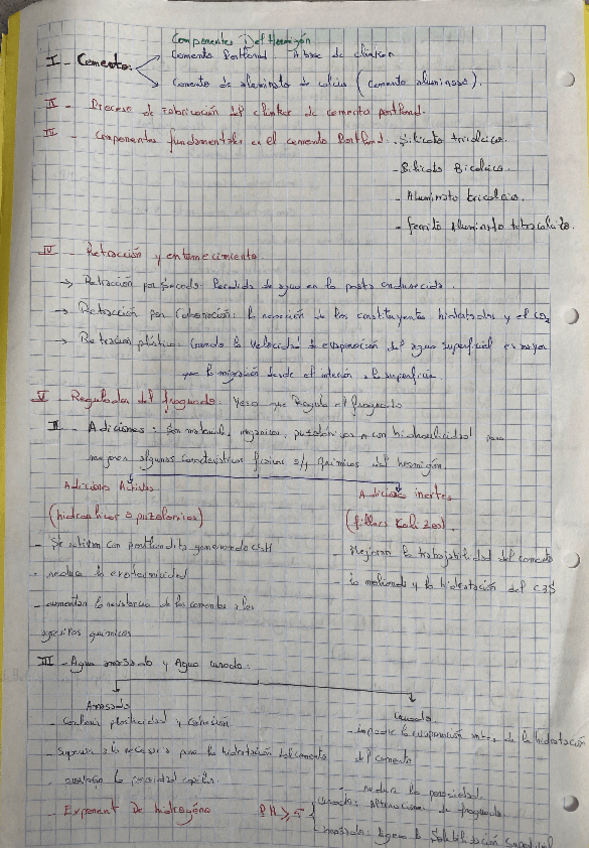 Componentes Del Hermigón
I - Cemento: Cemento Portland A base de clinker
Cemento de aluminato de calcio (cemento aluminoso).
II - Proceso de Fabricación del clinker de cemento portland.
III - Componentes fundamentales en el cemento Portland. - Silicato tricálcico.
- Silicato Bicálcico.
- Aluminato tricalcico.
- ferrito Aluminato tetracalcico.
IV - Retracción y entumecimiento.
→ Retracción por Secado: Perdida de agua en la pasta endurecida.
→ Retracción por Carbonación: la reacción de los constituyentes hidratados y el CO2
→ Retracción plástica: Cuando la velocidad de evaporación del agua superficial es mayor
que la migración desde el interior a la superficie.
V - Regulador del fraguado: Yeso que Regula el fraguado
II - Adiciones: Son materiales, puzolánicos o con hidraulicidad para
mejorar algunas características físicas y químicas del hormigón.
Adiciones Activas
Adiciones inertes
(hidraulicas o puzolanicas)
(fillers Calizos).
- Se activan con portlandita generando CSH
- Mejoran la trabajabilidad del
- reduce la exotermicidad
- la molienda y la hidratación del C3S
- aumentan la resistencia de los cementos a los
agresivos químicos
III - Agua amasado y Agua curado:
Amasado
Curado
- plasticidad y cohesión
- la evaporación antes de la hidratación
- para la hidratación del cemento
del cemento
- la porosidad
- reduce la porosidad
- Exponent De hidrogéno PH ≥ 5
curado: alteraciones de fraguado.
amasado: la Solubilización